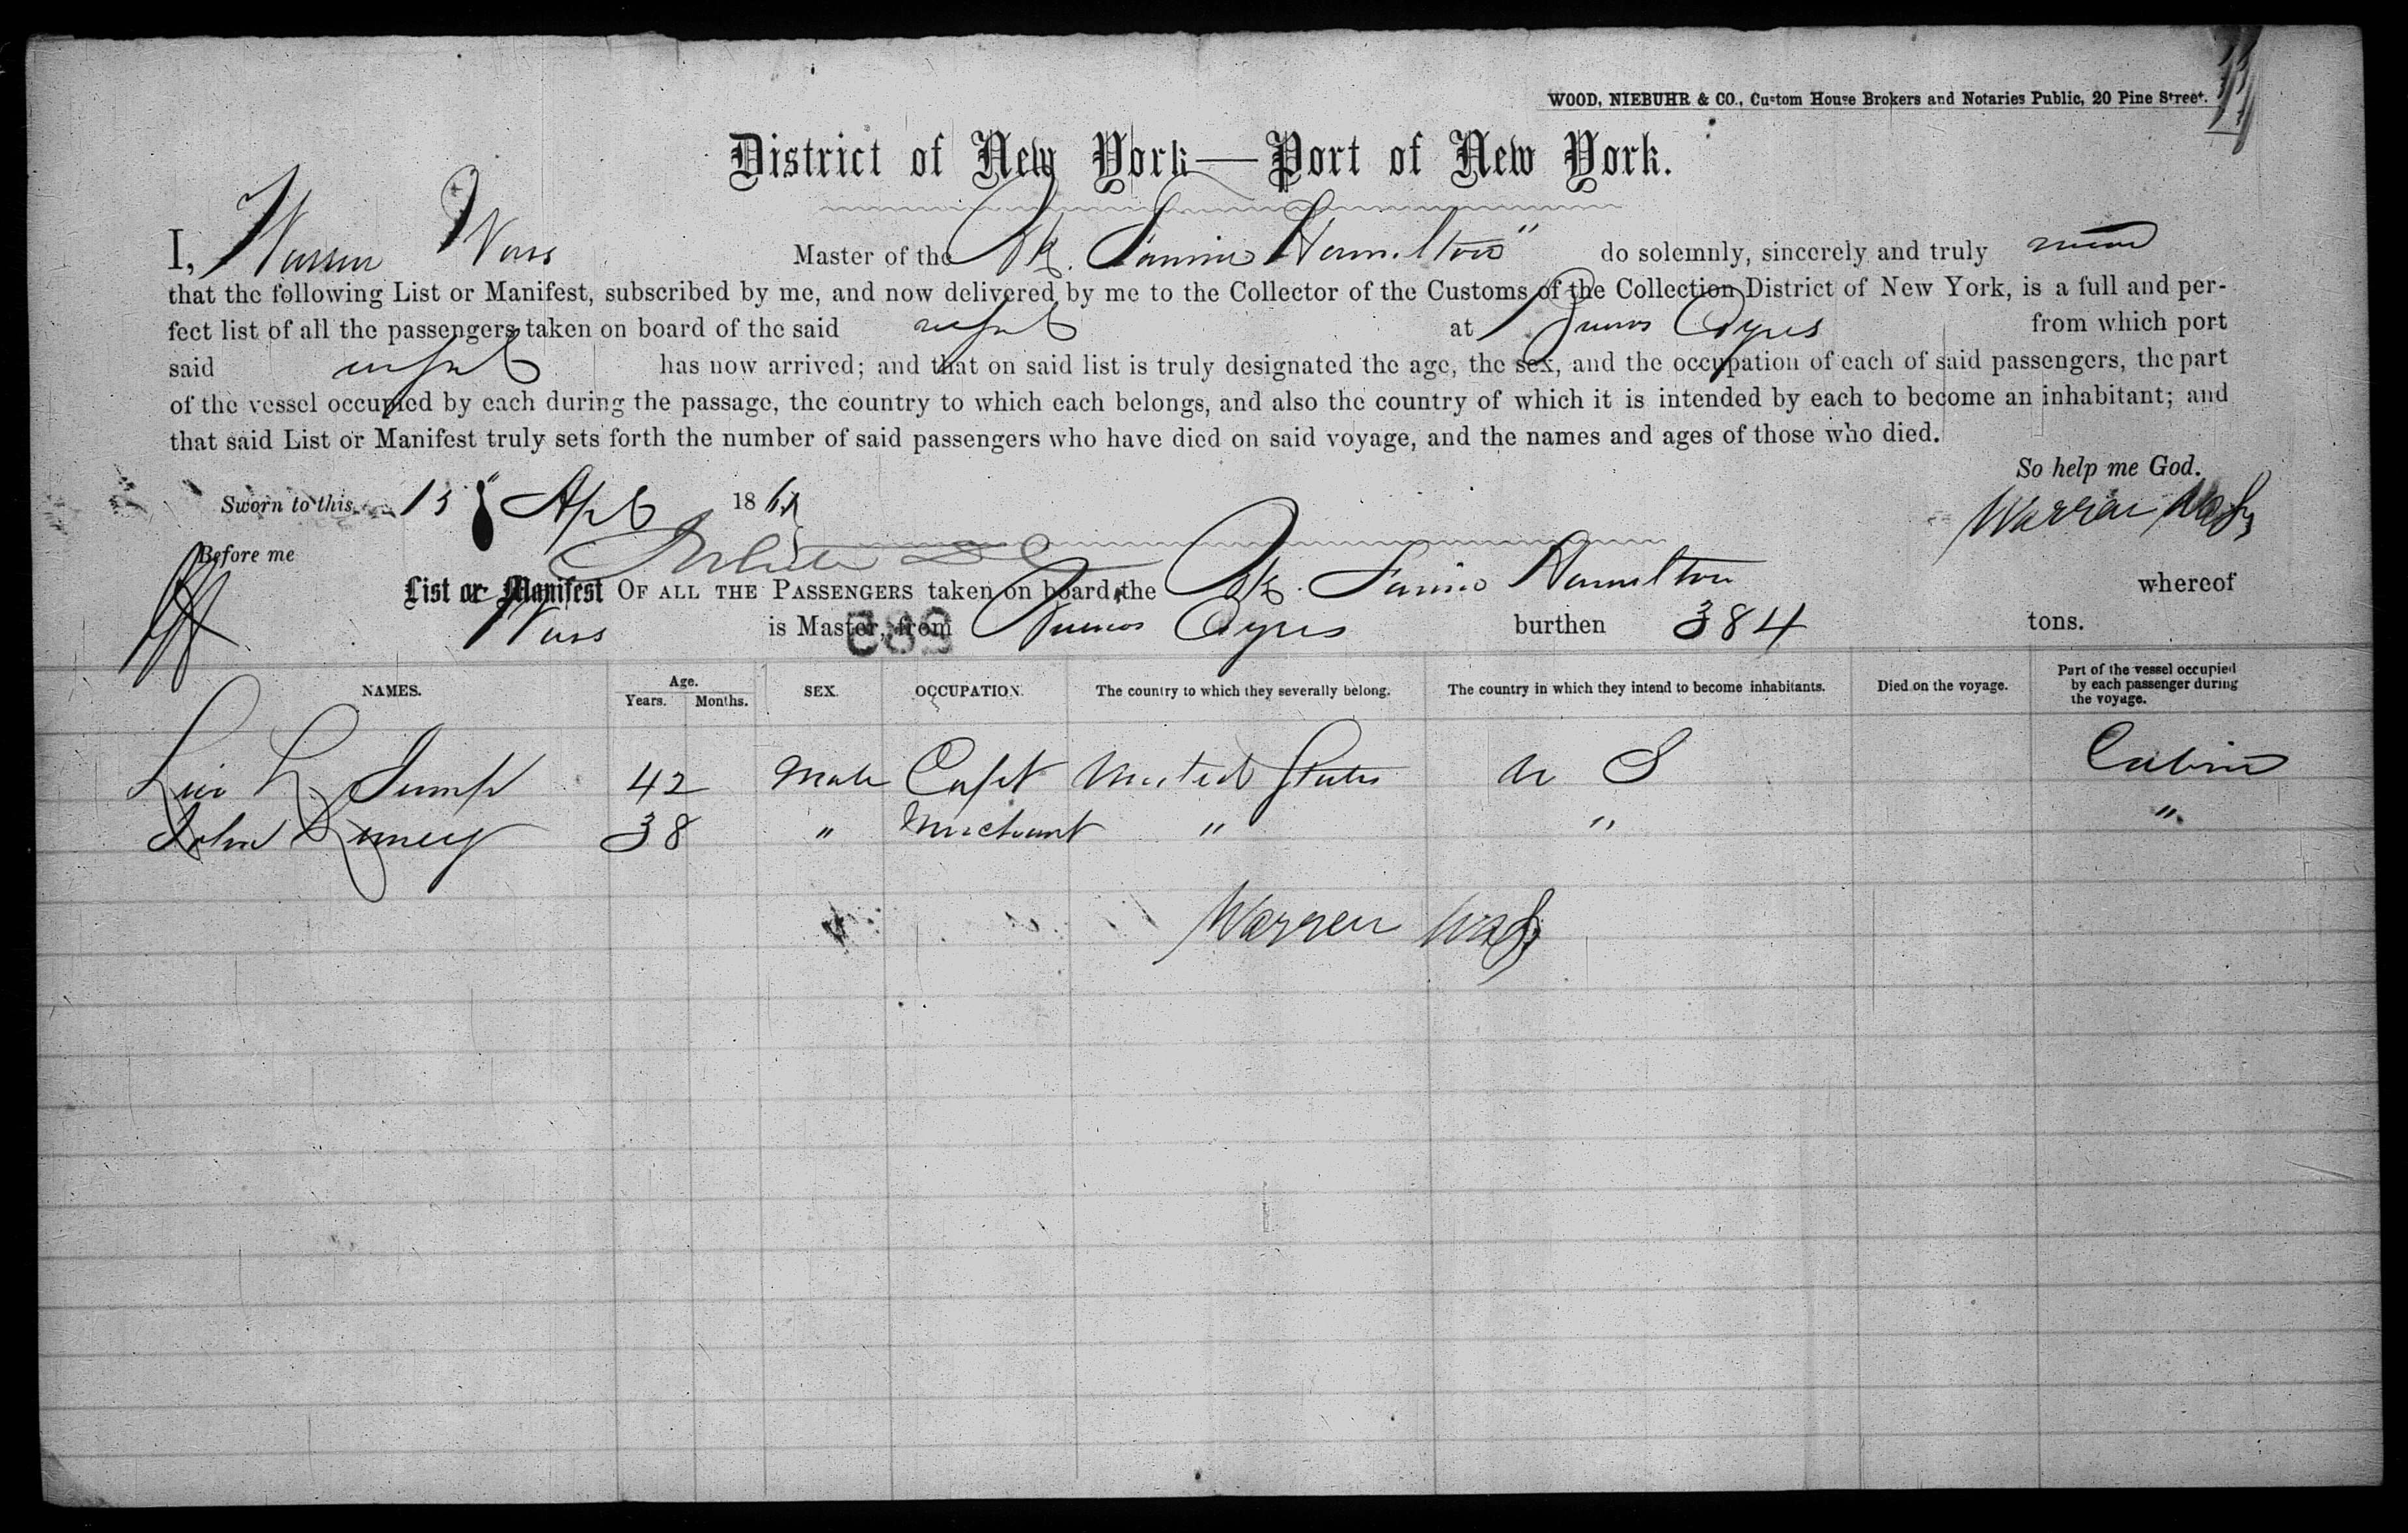 WOOD, NIEBUHR & CO., Custom House Brokers and Notaries Public, 20 Pine Street.
District of New York—Port of New York.
I, Warren Wass Master of the Bk. Fannie Hamilton" do solemnly, sincerely and truly swear
that the following List or Manifest, subscribed by me, and now delivered by me to the Collector of the Customs of the Collection District of New York, is a full and per-
fect list of all the passengers taken on board of the said vessel at Buenos Ayres from which port
said vessel has now arrived; and that on said list is truly designated the age, the sex, and the occupation of each of said passengers, the part
of the vessel occupied by each during the passage, the country to which each belongs, and also the country of which it is intended by each to become an inhabitant; and
that said List or Manifest truly sets forth the number of said passengers who have died on said voyage, and the names and ages of those who died.
So help me God.
Sworn to this 13 Apl 186 Warren Wass
Before me
List or Manifest OF ALL THE PASSENGERS taken on board the Bk. Fannie Hamilton whereof
Wass is Master, from Buenos Ayres burthen 384 tons.
582
NAMES. Age. Years. Months. SEX. OCCUPATION. The country to which they severally belong. The country in which they intend to become inhabitants. Died on the voyage. Part of the vessel occupied by each passenger during the voyage.
L. Jump 42 Male Capt United States U S Cabin
John 38 " Merchant " " "
Warren Wass